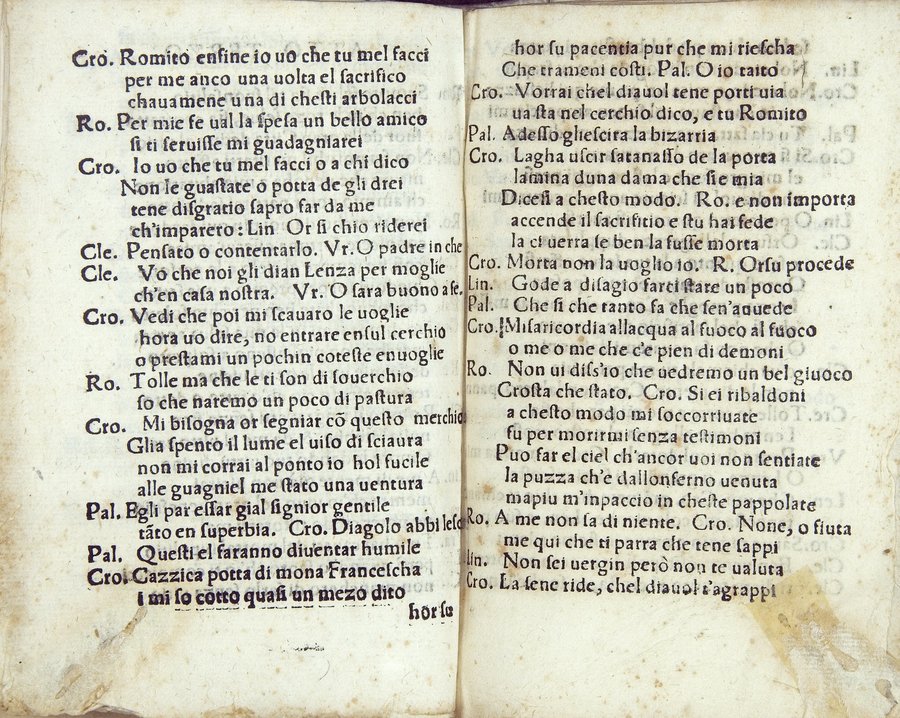 Cro. Romito enfine io uo che tu mel facci
per me anco una uolta el ſacrifico
chauamene una di cheſti arbolacci
Ro. Per mie fe ual la ſpeſa un bello amico
ſi ti ſeruiſſe mi guadagniarei
Cro. Io uo che tu mel facci o a chi dico
Non le guaſtate o potta de gli drei
tene diſgratio ſapro far da me
ch'imparero: Lin Or ſi chio riderei
Cle. Penſato o contentarlo. Vr. O padre in che
Cle. Vo che noi gli dian Lenza per moglie
ch'en caſa noſtra. Vr. O ſara buono a ſe.
Cro. Vedi che poi mi ſcauaro le uoglie
hora uo dire, no entrare enſul cerchio
o preſtami un pochin coteſte enuoglie
Ro. Tolle ma che le ti ſon di ſouerchio
ſo che naremo un poco di paſtura
Cro. Mi biſogna or ſegniar cõ queſto merchio
Glia ſpento il lume el uiſo di ſciaura
non mi corrai al ponto io hol fucile
alle guagniel me ſtato una uentura
Pal. Egli par eſſar gial ſignior gentile
tãto en ſuperbia. Cro. Diagolo abbi leſca
Pal. Queſti el faranno diuentar humile
Cro. Cazzica potta di mona Franceſcha
i mi ſo cotto quaſi un mezo dito
hor ſu
hor ſu pacentia pur che mi rieſcha
Che trameni coſti. Pal. O io taito
Cro. Vorrai chel diauol tene porti uia
ua ſta nel cerchio dico, e tu Romito
Pal. Adeſſo gleſcira la bizarria
Cro. Lagha uſcir ſatanaſſo de la porta
lamina duna dama che ſie mia
Diceſi a cheſto modo. Ro. e non importa
accende il ſacrifitio e ſtu hai fede
la ci uerra ſe ben la fuſſe morta
Cro. Morta non la uoglio io. R. Orſu procede
Lin. Gode a diſagio farci ſtare un poco
Pal. Che ſi che tanto fa che ſen'auuede
Cro. Miſaricordia allacqua al fuoco al fuoco
o me o me che c'e pien di demoni
Ro. Non ui diſſ'io che uedremo un bel giuoco
Croſta che ſtato. Cro. Si ei ribaldoni
a cheſto modo mi ſoccorriuate
ſu per morirmi ſenza teſtimoni
Puo far el ciel ch'ancor uoi non ſentiate
la puzza ch'e dallonferno uenuta
mapiu m'inpaccio in cheſte pappolate
Ro. A me non ſa di niente. Cro. None, o fiuta
me qui che ti parra che tene ſappi
Lin. Non ſei uergin però non te ualuta
Cro. La ſene ride, chel diauol t'agrappi